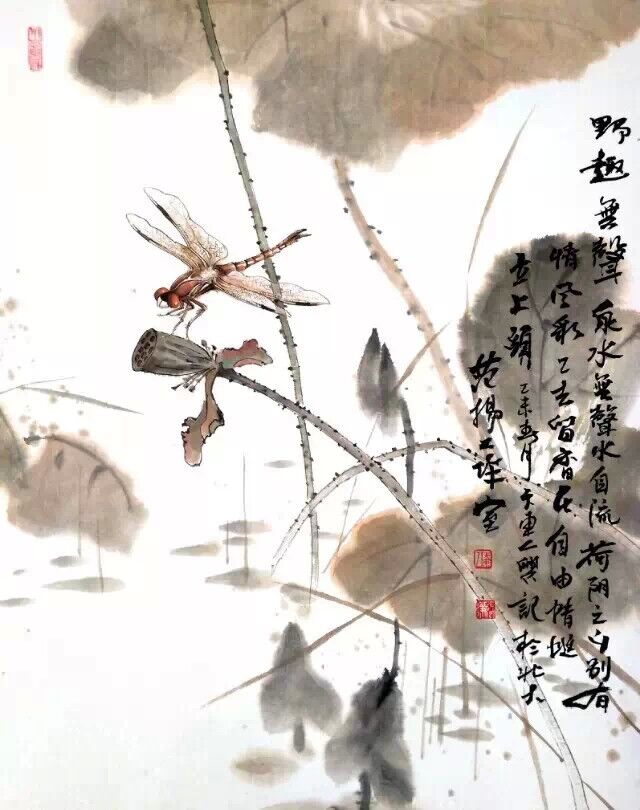 野趣 無聲 泉水無聲水自流 荷陰之下別有
情 风彩已去留香在 自由蜻蜓
立上頭 乙未 月 記於北大
范揚工作室